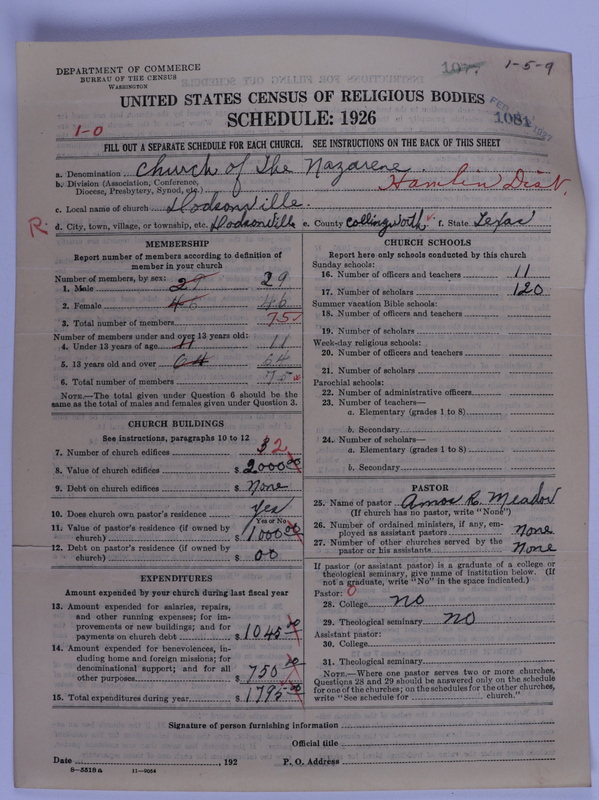 DEPARTMENT OF COMMERCE
BUREAU OF THE CENSUS
WASHINGTON
1077
1-5-9
UNITED STATES CENSUS OF RELIGIOUS BODIES
SCHEDULE: 1926
1081
1-0
FILL OUT A SEPARATE SCHEDULE FOR EACH CHURCH. SEE INSTRUCTIONS ON THE BACK OF THIS SHEET
a. Denomination Church of The Nazarene.
b. Division (Association, Conference,
Diocese, Presbytery, Synod, etc.) Hamlin Dist.
c. Local name of church Dodsonville.
R. d. City, town, village, or township, etc. Dodsonville e. County Collingworth f. State Texas
MEMBERSHIP
Report number of members according to definition of
member in your church
Number of members, by sex:
1. Male 29 29
2. Female 46 46
3. Total number of members 75
Number of members under and over 13 years old:
4. Under 13 years of age 11 11
5. 13 years old and over 64 64
6. Total number of members 75
NOTE.—The total given under Question 6 should be the
same as the total of males and females given under Question 3.
CHURCH BUILDINGS
See instructions, paragraphs 10 to 12
7. Number of church edifices 2
8. Value of church edifices $ 2000 00
9. Debt on church edifices $ None
10. Does church own pastor's residence? Yes
Yes or No
11. Value of pastor's residence (if owned by
church) $ 1000 00
12. Debt on pastor's residence (if owned by
church) $ 00
EXPENDITURES
Amount expended by your church during last fiscal year
13. Amount expended for salaries, repairs,
and other running expenses; for im-
provements or new buildings; and for
payments on church debt $ 1045 00
14. Amount expended for benevolences, in-
cluding home and foreign missions; for
denominational support; and for all
other purposes $ 750 00
15. Total expenditures during year $ 1795 00
CHURCH SCHOOLS
Report here only schools conducted by this church
Sunday schools:
16. Number of officers and teachers 11
17. Number of scholars 120
Summer vacation Bible schools:
18. Number of officers and teachers
19. Number of scholars
Week-day religious schools:
20. Number of officers and teachers
21. Number of scholars
Parochial schools:
22. Number of administrative officers
23. Number of teachers—
a. Elementary (grades 1 to 8)
b. Secondary
24. Number of scholars—
a. Elementary (grades 1 to 8)
b. Secondary
PASTOR
25. Name of pastor Amos R. Meador
(If church has no pastor, write "None")
26. Number of ordained ministers, if any, em-
ployed as assistant pastors None
27. Number of other churches served by the
pastor or his assistants None
If pastor (or assistant pastor) is a graduate of a college or
theological seminary, give name of institution below. (If
not a graduate, write "No" in the space indicated.)
Pastor: 0
28. College No
29. Theological seminary No
Assistant pastor:
30. College
31. Theological seminary
NOTE.—Where one pastor serves two or more churches,
Questions 28 and 29 should be answered only on the schedule
for one of the churches; on the schedules for the other churches,
write "See schedule for church."
Signature of person furnishing information
Official title
Date , 192 P. O. Address
8-5518a 11-9054